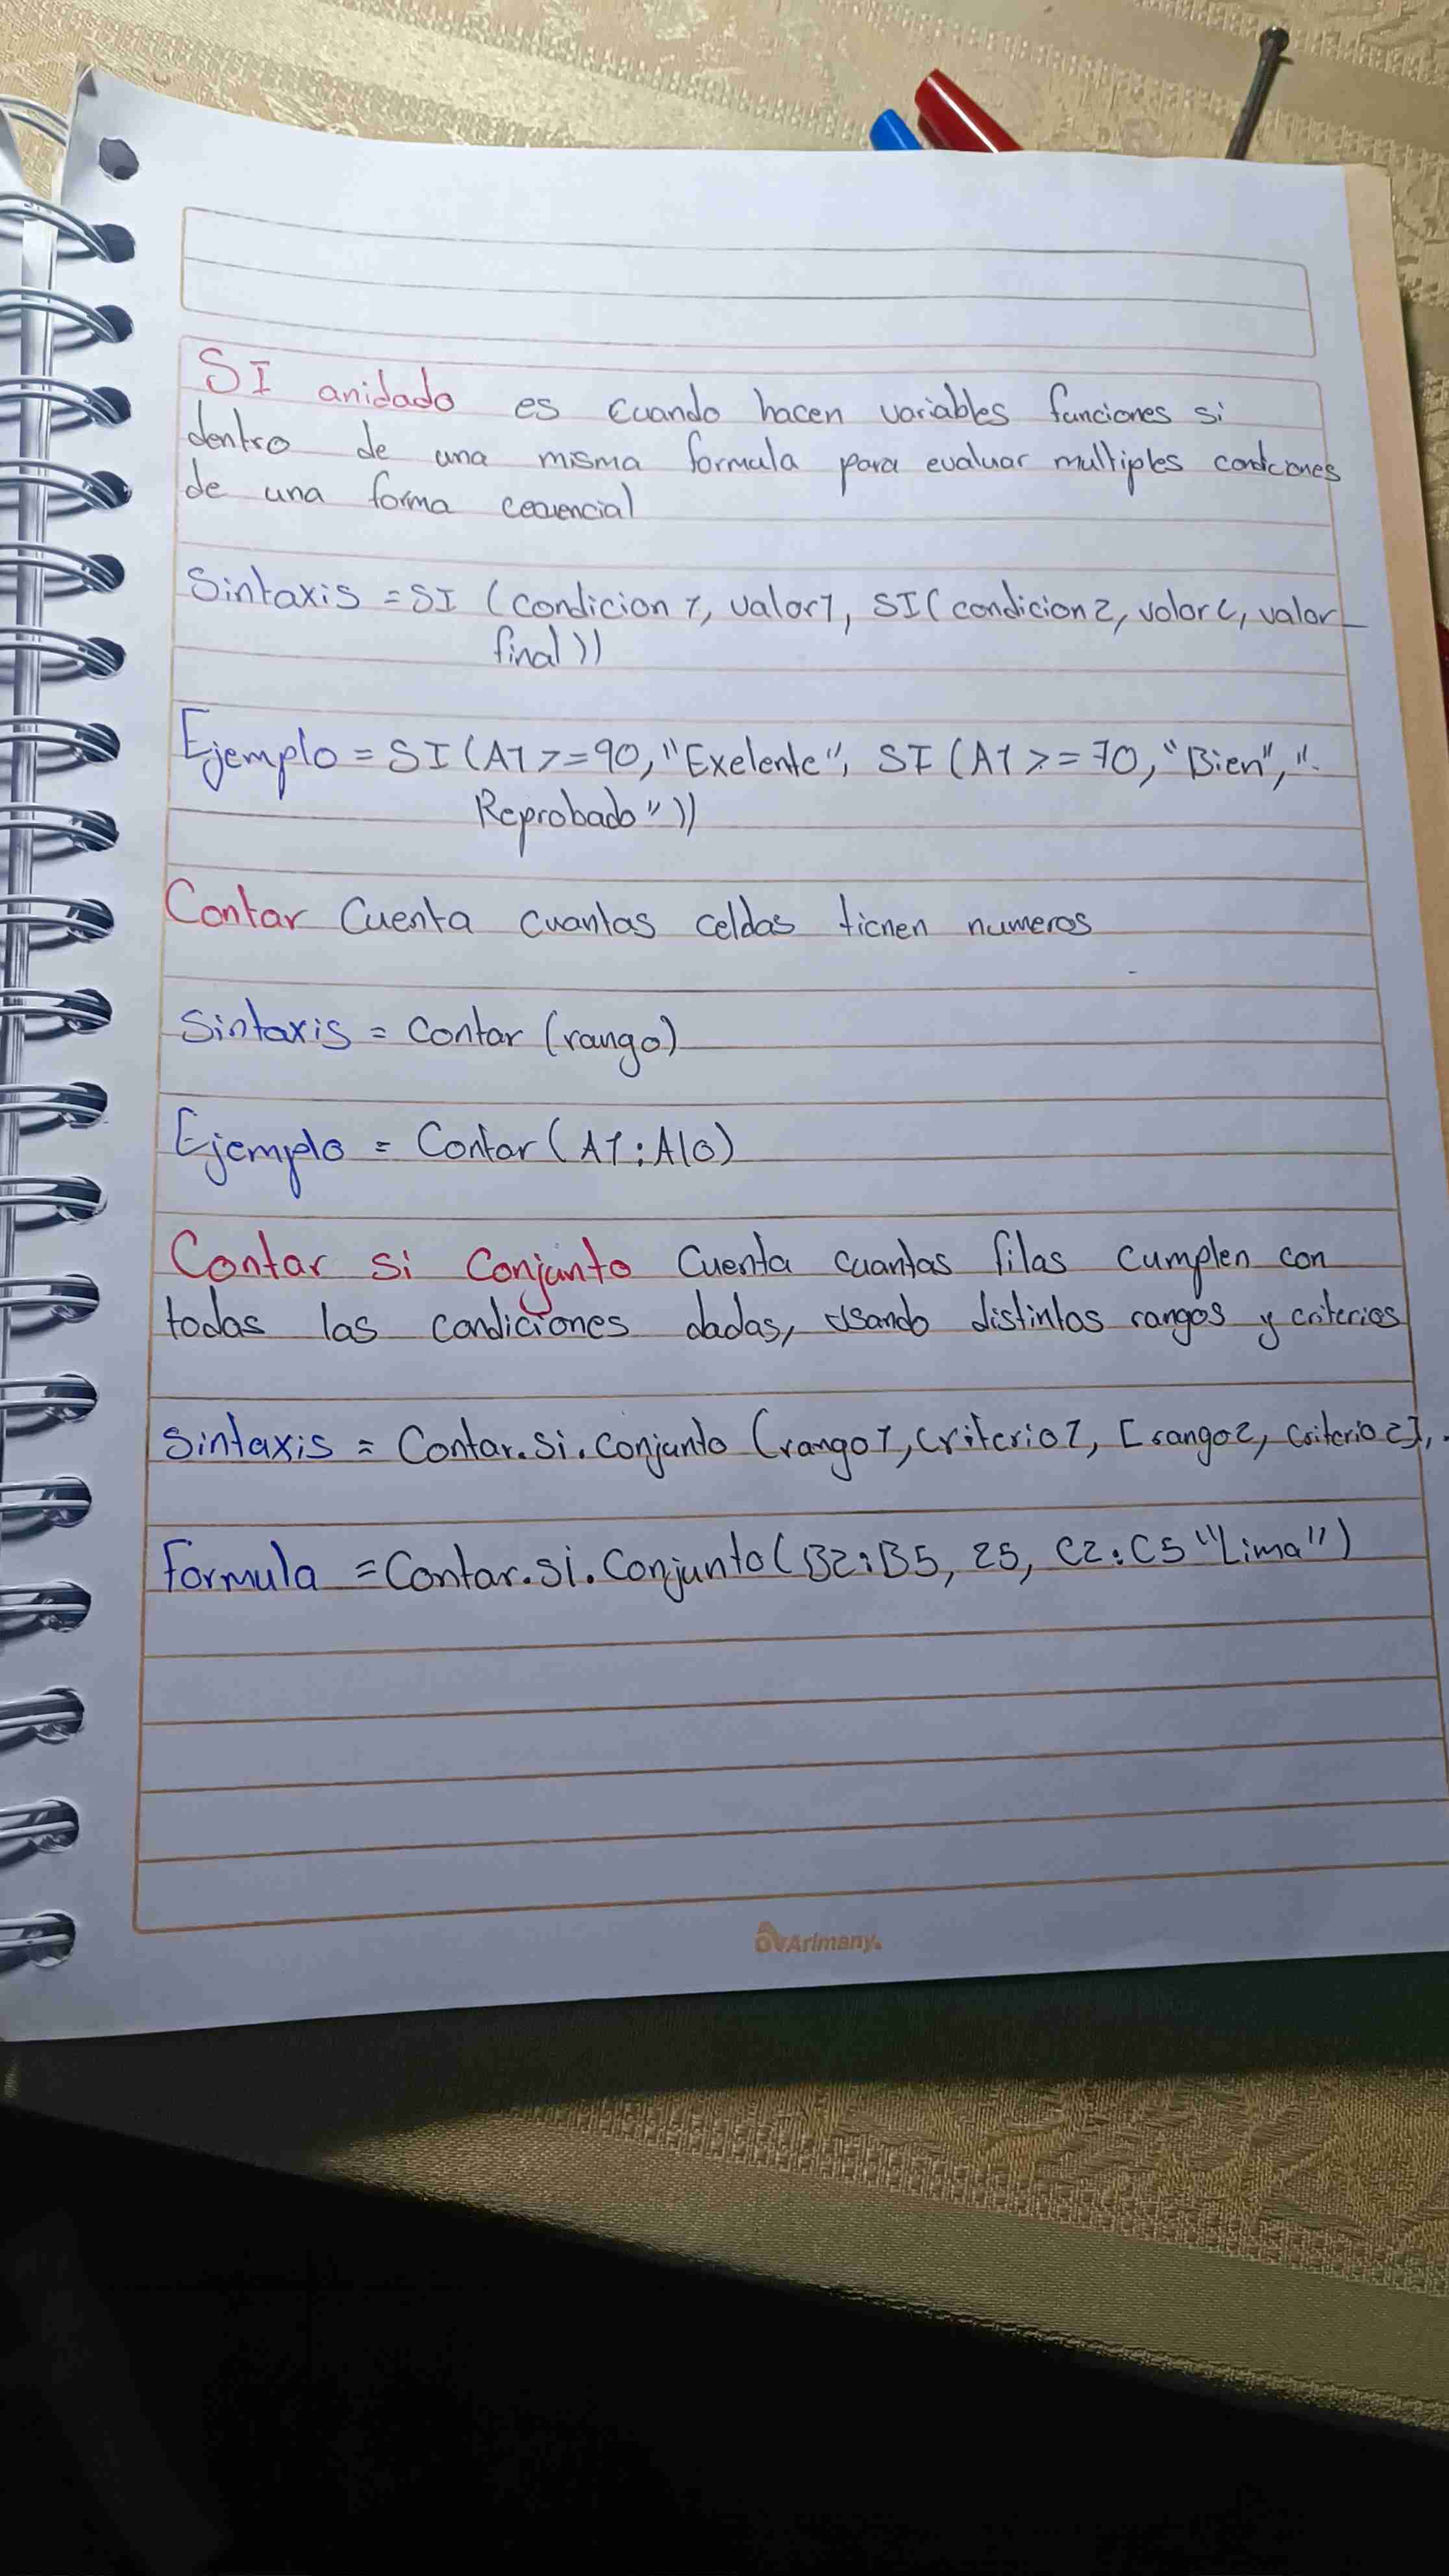 SI anidado es cuando hacen variables funciones si
dentro de una misma formula para evaluar multiples condciones
de una forma cecuencial
Sintaxis = SI (condicion 1, valor1, SI(condicion2, valor2, valor
final))
Ejemplo = SI(A1>=90, "Exelente", SI(A1>=70, "Bien", "
Reprobado"))
Contar Cuenta cuantas celdas tienen numeros
Sintaxis = Contar (rango)
Ejemplo = Contar(A1:A10)
Contar si Conjunto Cuenta cuantas filas cumplen con
todas las condiciones dadas, usando distintos rangos y criterios
Sintaxis = Contar.si.conjunto (rango1, criterio1, [rango2, criterio2], .
Formula =Contar.si.Conjunto(B2:B5, 25, C2:C5 "Lima")
Arimany.